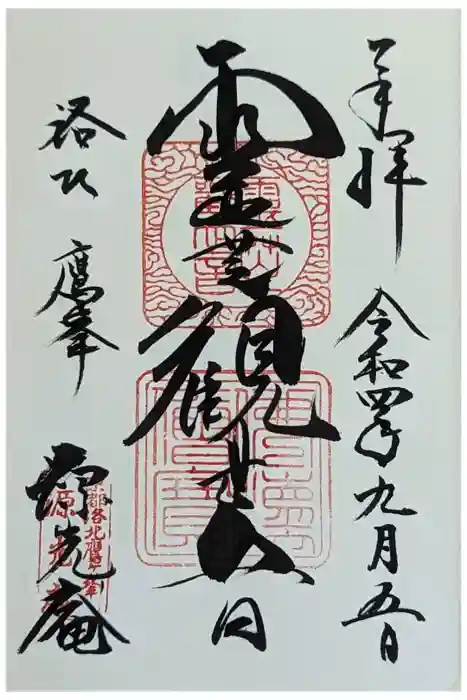 奉拝 令和四年九月五日
霊芝観世音
洛北 鷹峯
源光庵